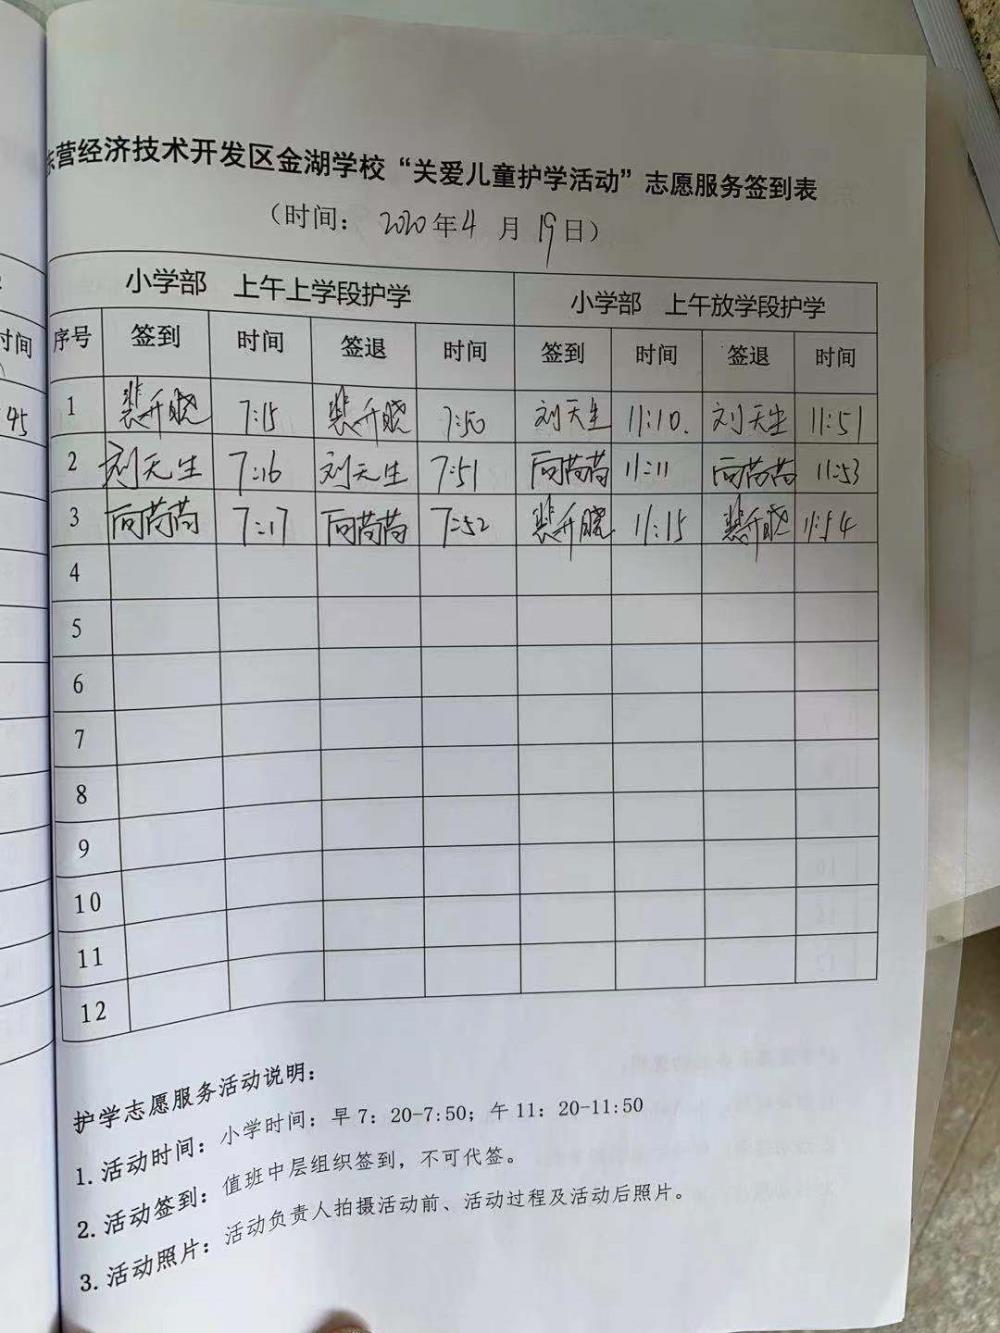 东营经济技术开发区金湖学校“关爱儿童护学活动”志愿服务签到表
（时间：2020年4月19日）
小学部 上午上学段护学 小学部 上午放学段护学
序号 签到 时间 签退 时间 签到 时间 签退 时间
1 裴升晓 7:15 裴升晓 7:50 刘天生 11:10. 刘天生 11:51
2 刘天生 7:16 刘天生 7:51 向芮芮 11:11 向芮芮 11:53
3 向芮芮 7:17 向芮芮 7:52 裴升晓 11:15 裴升晓 11:54
4
5
6
7
8
9
10
11
12
护学志愿服务活动说明：
1. 活动时间：小学时间：早7：20-7:50；午11：20-11:50
2. 活动签到：值班中层组织签到，不可代签。
3. 活动照片：活动负责人拍摄活动前、活动过程及活动后照片。
时间
45